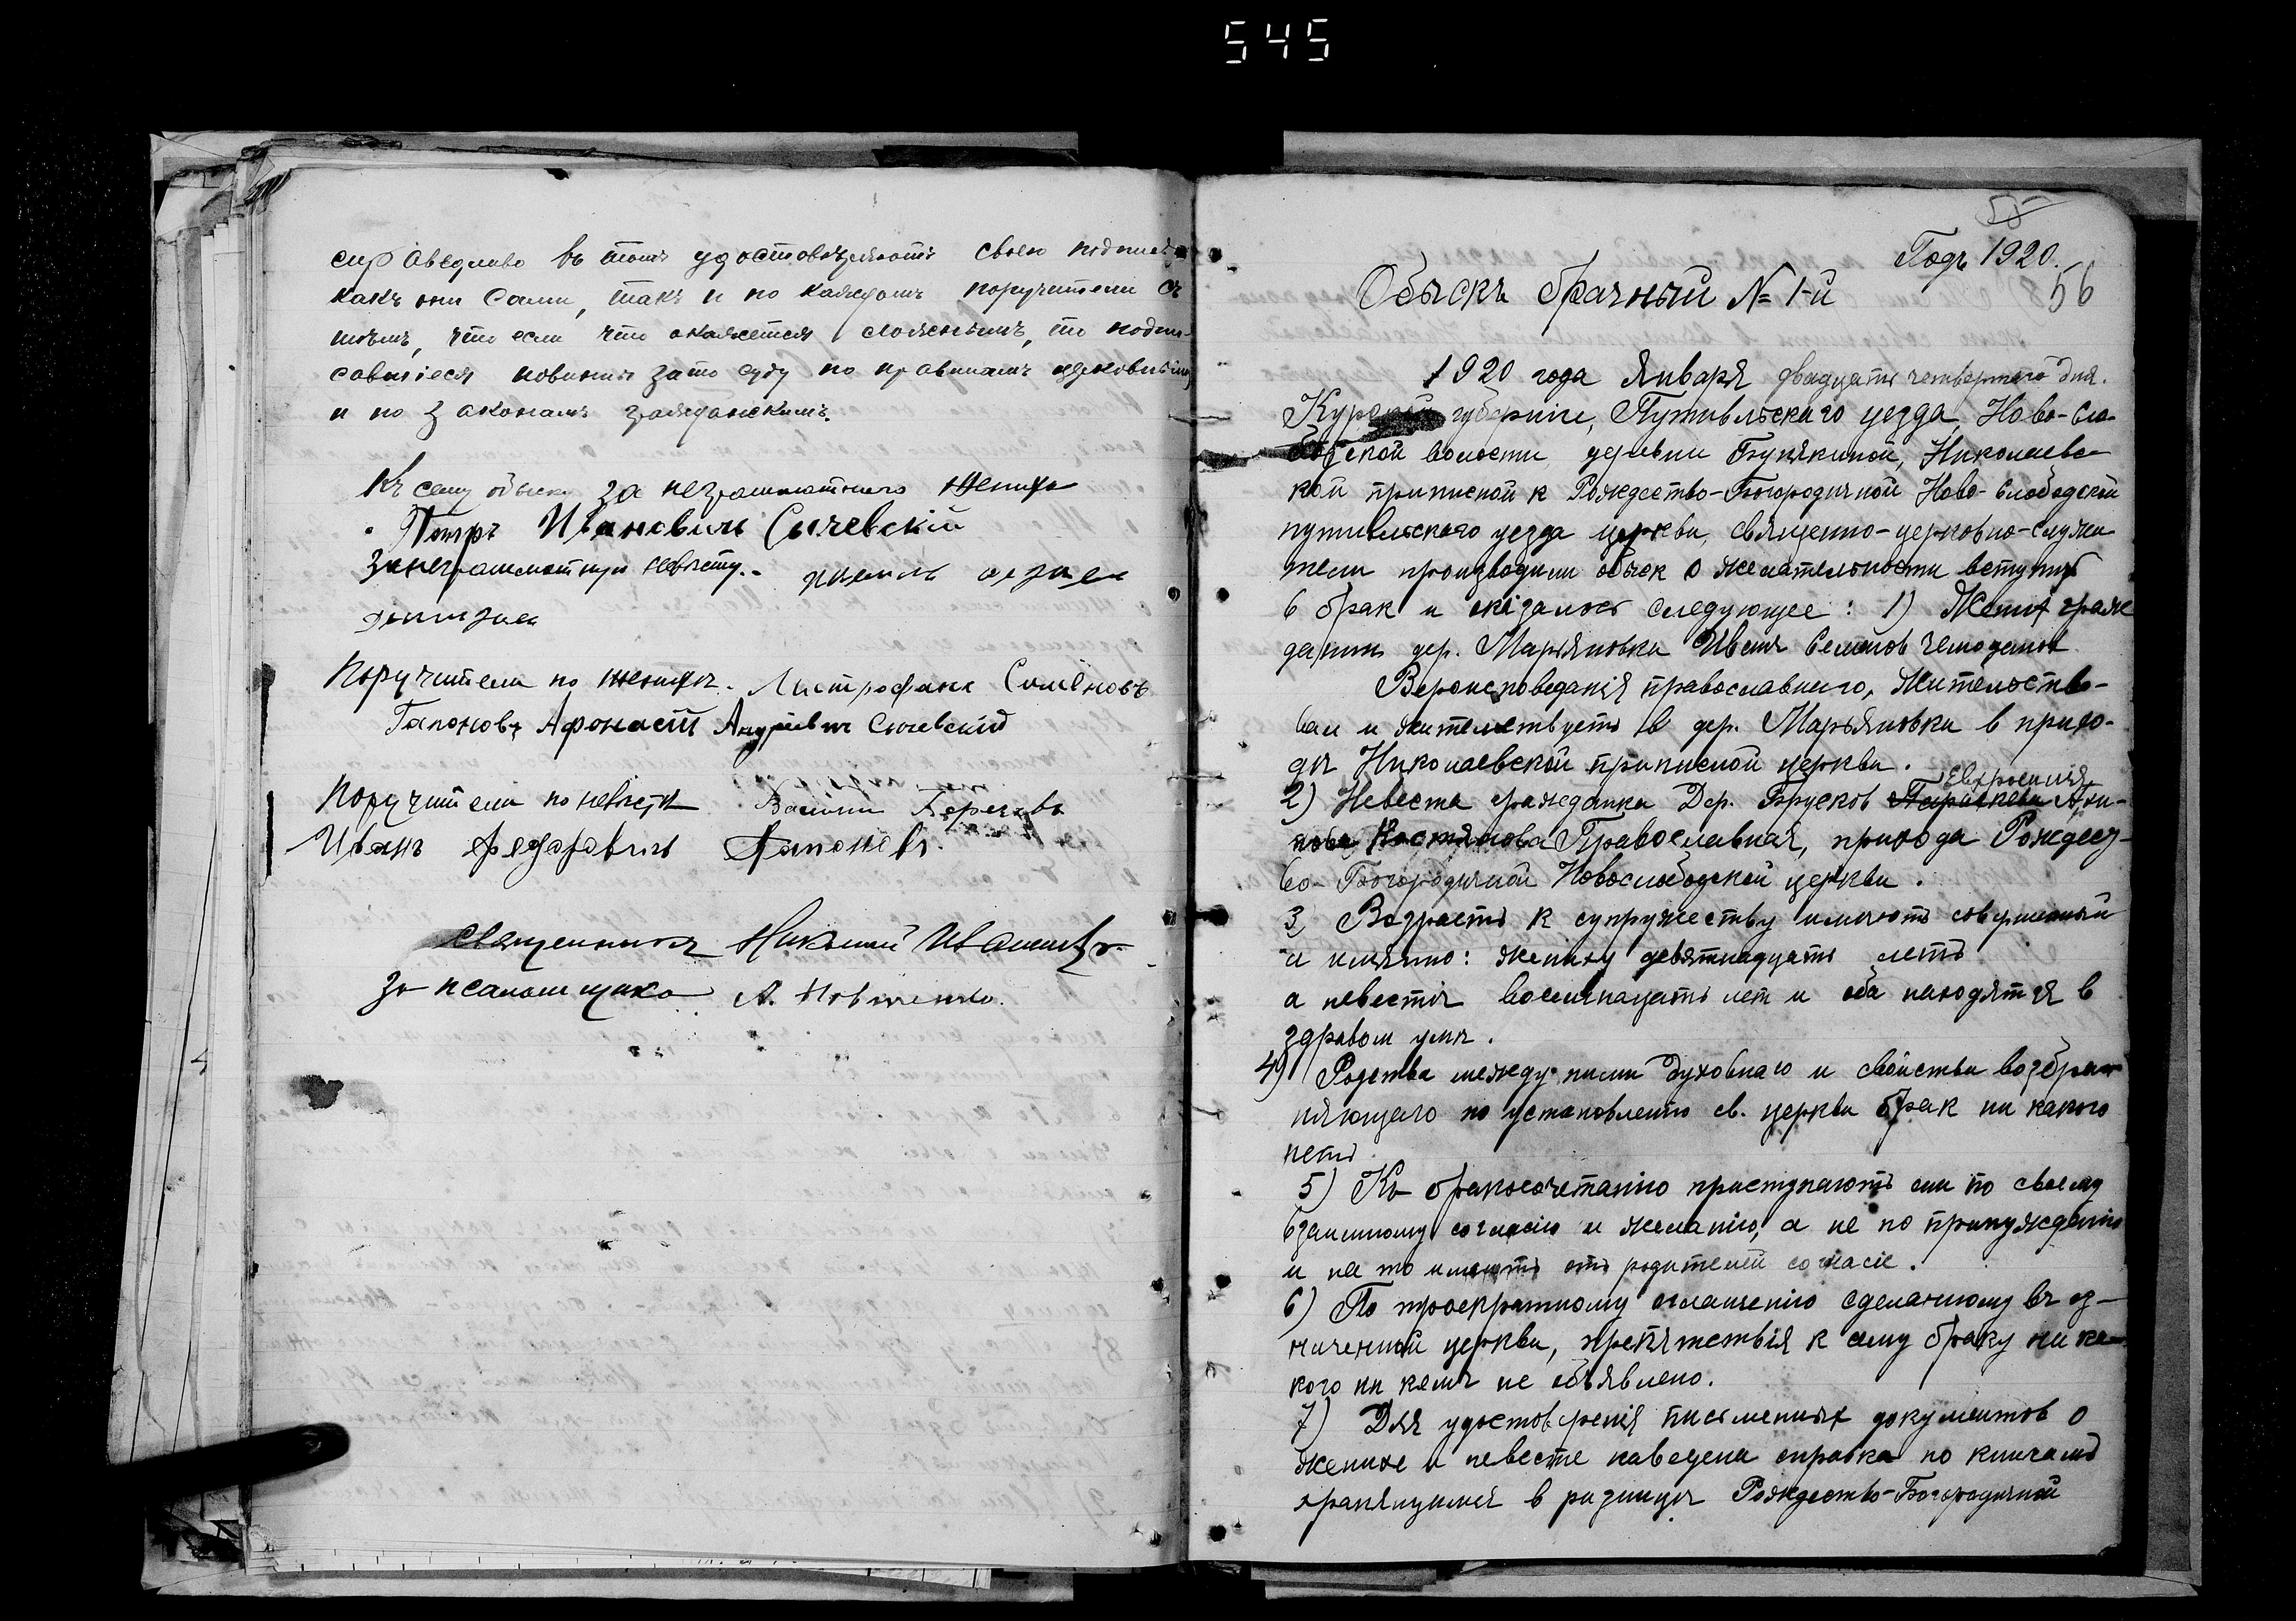 545
справедливо въ томъ удостовѣряютъ своею подписью
какъ они сами, такъ и по каждомъ поручители съ
тѣмъ, что если что окажется ложнымъ, то подпи-
савшіеся повинны зато суду по правиламъ церковнымъ
и по законамъ гражданскимъ.
Къ сему обыску за неграмотнаго жениха
Петръ Ивановичъ Сычевскій
За неграмотную невѣсту.
Поручители по женихѣ. Митрофанъ Семёновъ
Гапоновъ Афонасій Андріевич Сычевский
Поручители по невѣсте
Иванъ Федаравичъ
Священникъ Николай
За псаломщика А.
55
Годъ 1920.
56
Обыскъ брачный № 1-й
1920 года Января двадцать четвертого дня.
Курской губерніи, Путивльскаго уезда, Ново-Сло-
бодской волости, деревни Бунякиной, Николаевс-
кой приписной к Рождество-Богородичной Ново-Слободской
путивльского уезда церкви, священно-церковно-служи-
тели производили обыск о желательности вступит
в брак и оказалось следующее: 1) Жених граж
данин дер. Марьяновки Иванъ Чемоданов
Вероисповеданія православного, жительство-
вал и жительствуетъ в дер. Марьяновки в прихо-
дѣ Николаевской приписной церкви.
Евфросинія
2) Невеста гражданка Дер. Брусков Параскева
Православная, прихода Рождест-
во-Богородичной Новослободской церкви.
3) Возрастъ к супружеству имеютъ совершенный
и имянно: жениху девятнадцать летъ
а невестѣ восемнацать лет и оба находятся в
здравом умѣ.
4) Родства между ними духовнаго и свойства возбран
няющего по установлению св. церкви брак ни какого
нетъ
5) Къ бракосочетанію приступаютъ они по своему
взаимному согласію и желанію, а не по принужденію
и на то имеютъ отъ родителей согласіе.
6) По троекратному оглашенію сделанному въ оз-
наченной церкви, препятствія к сему браку ни ка-
кого ни кемъ не объявлено.
7) Для удостоверенія письменных документов о
женихе и невесте наведена справка по книгамъ
хранящимся в ризницѣ Рождество-Богородичной